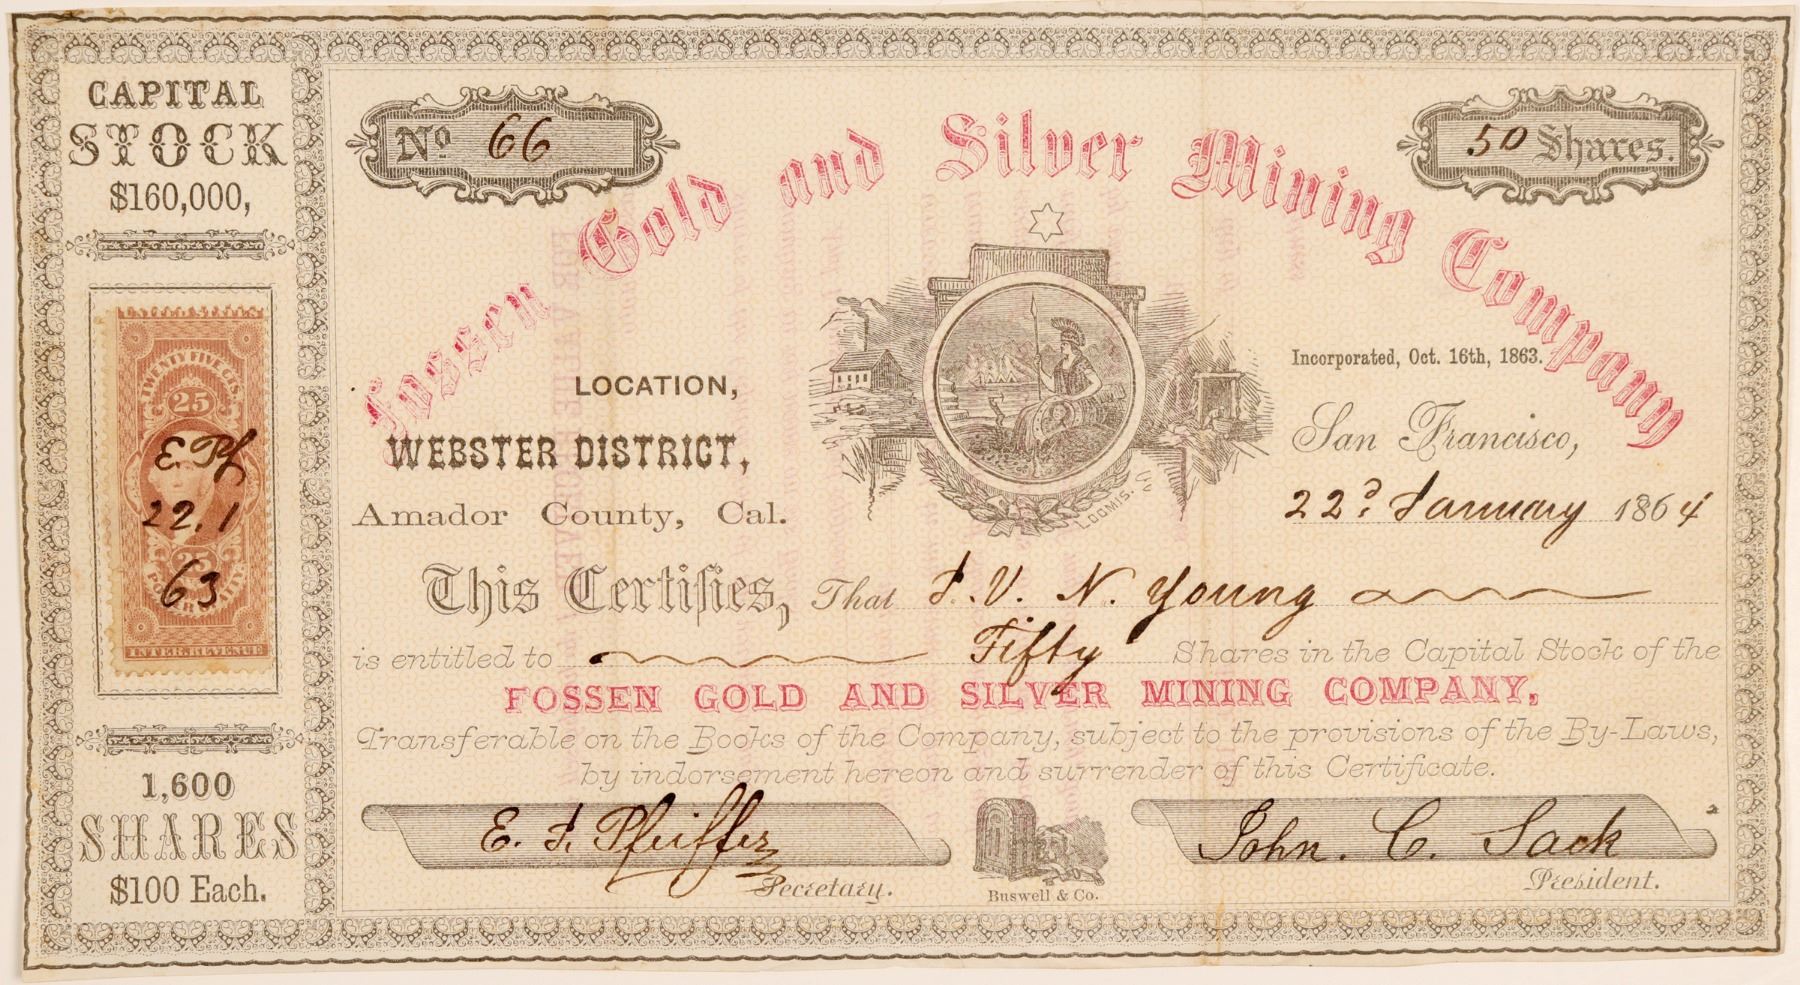 CAPITAL
STOCK
$160,000,
UNITED STATES
TWENTY FIVE CTS.
25
E. Pf
22.1
63
25
INTER. REVENUE
1,600
SHARES
$100 Each.
No. 66
50 Shares.
Fossen Gold and Silver Mining Company
Incorporated, Oct. 16th, 1863.
LOCATION,
WEBSTER DISTRICT,
Amador County, Cal.
LOOMIS.
San Francisco,
22d January 1864
This Certifies, That J. V. N. Young
is entitled to Fifty Shares in the Capital Stock of the
FOSSEN GOLD AND SILVER MINING COMPANY,
Transferable on the Books of the Company, subject to the provisions of the By-Laws,
by indorsement hereon and surrender of this Certificate.
E. J. Pfeiffer
Secretary.
Buswell & Co.
John. C. Sack
President.